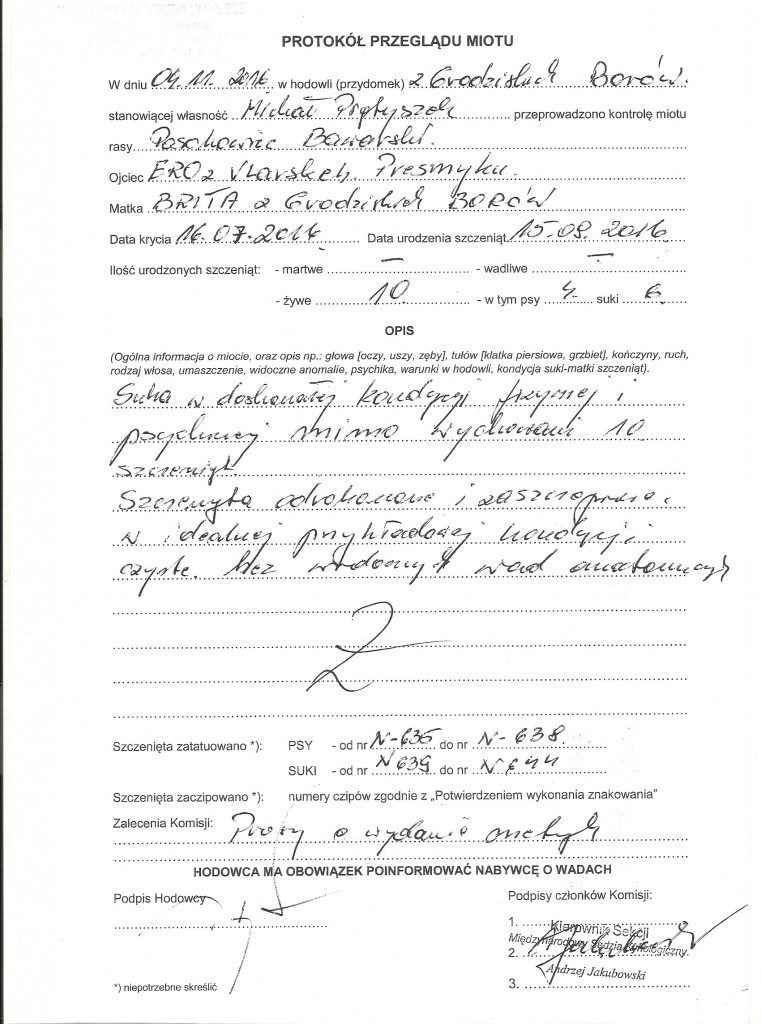 PROTOKÓŁ PRZEGLĄDU MIOTU
W dniu 04.11.2016 w hodowli (przydomek) z Grodziskich Borów.
stanowiącej własność Michał przeprowadzono kontrolę miotu
rasy Posokowiec Bawarski.
Ojciec ERO z Vlarskeh. Presmyku.
Matka BRITA z Grodziskich BORÓW
Data krycia 16.07.2016 Data urodzenia szczeniąt 15.09.2016
Ilość urodzonych szczeniąt: - martwe — - wadliwe —
- żywe 10 - w tym psy 4 suki 6
OPIS
(Ogólna informacja o miocie, oraz opis np.: głowa [oczy, uszy, zęby], tułów [klatka piersiowa, grzbiet], kończyny, ruch,
rodzaj włosa, umaszczenie, widoczne anomalie, psychika, warunki w hodowli, kondycja suki-matki szczeniąt).
Suka w doskonałej kondycji fizycznej i
psychicznej mimo wychowani 10
szczeniąt.
Szczenięta odrobaczone i zaszczepione.
w idealnej przykładowej kondycji
czyste. bez widocznych wad anatomicznych
Szczenięta zatatuowano *): PSY - od nr N-635 do nr N-638.
SUKI - od nr N639 do nr N644
Szczenięta zaczipowano *): numery czipów zgodnie z „Potwierdzeniem wykonania znakowania”
Zalecenia Komisji: Proszę o wydanie metryk
HODOWCA MA OBOWIĄZEK POINFORMOWAĆ NABYWCĘ O WADACH
Podpis Hodowcy
Podpisy członków Komisji:
1. Kierownik Sekcji
Międzynarodowy Sędzia Kynologiczny
2.
Andrzej Jakubowski
3.
*) niepotrzebne skreślić